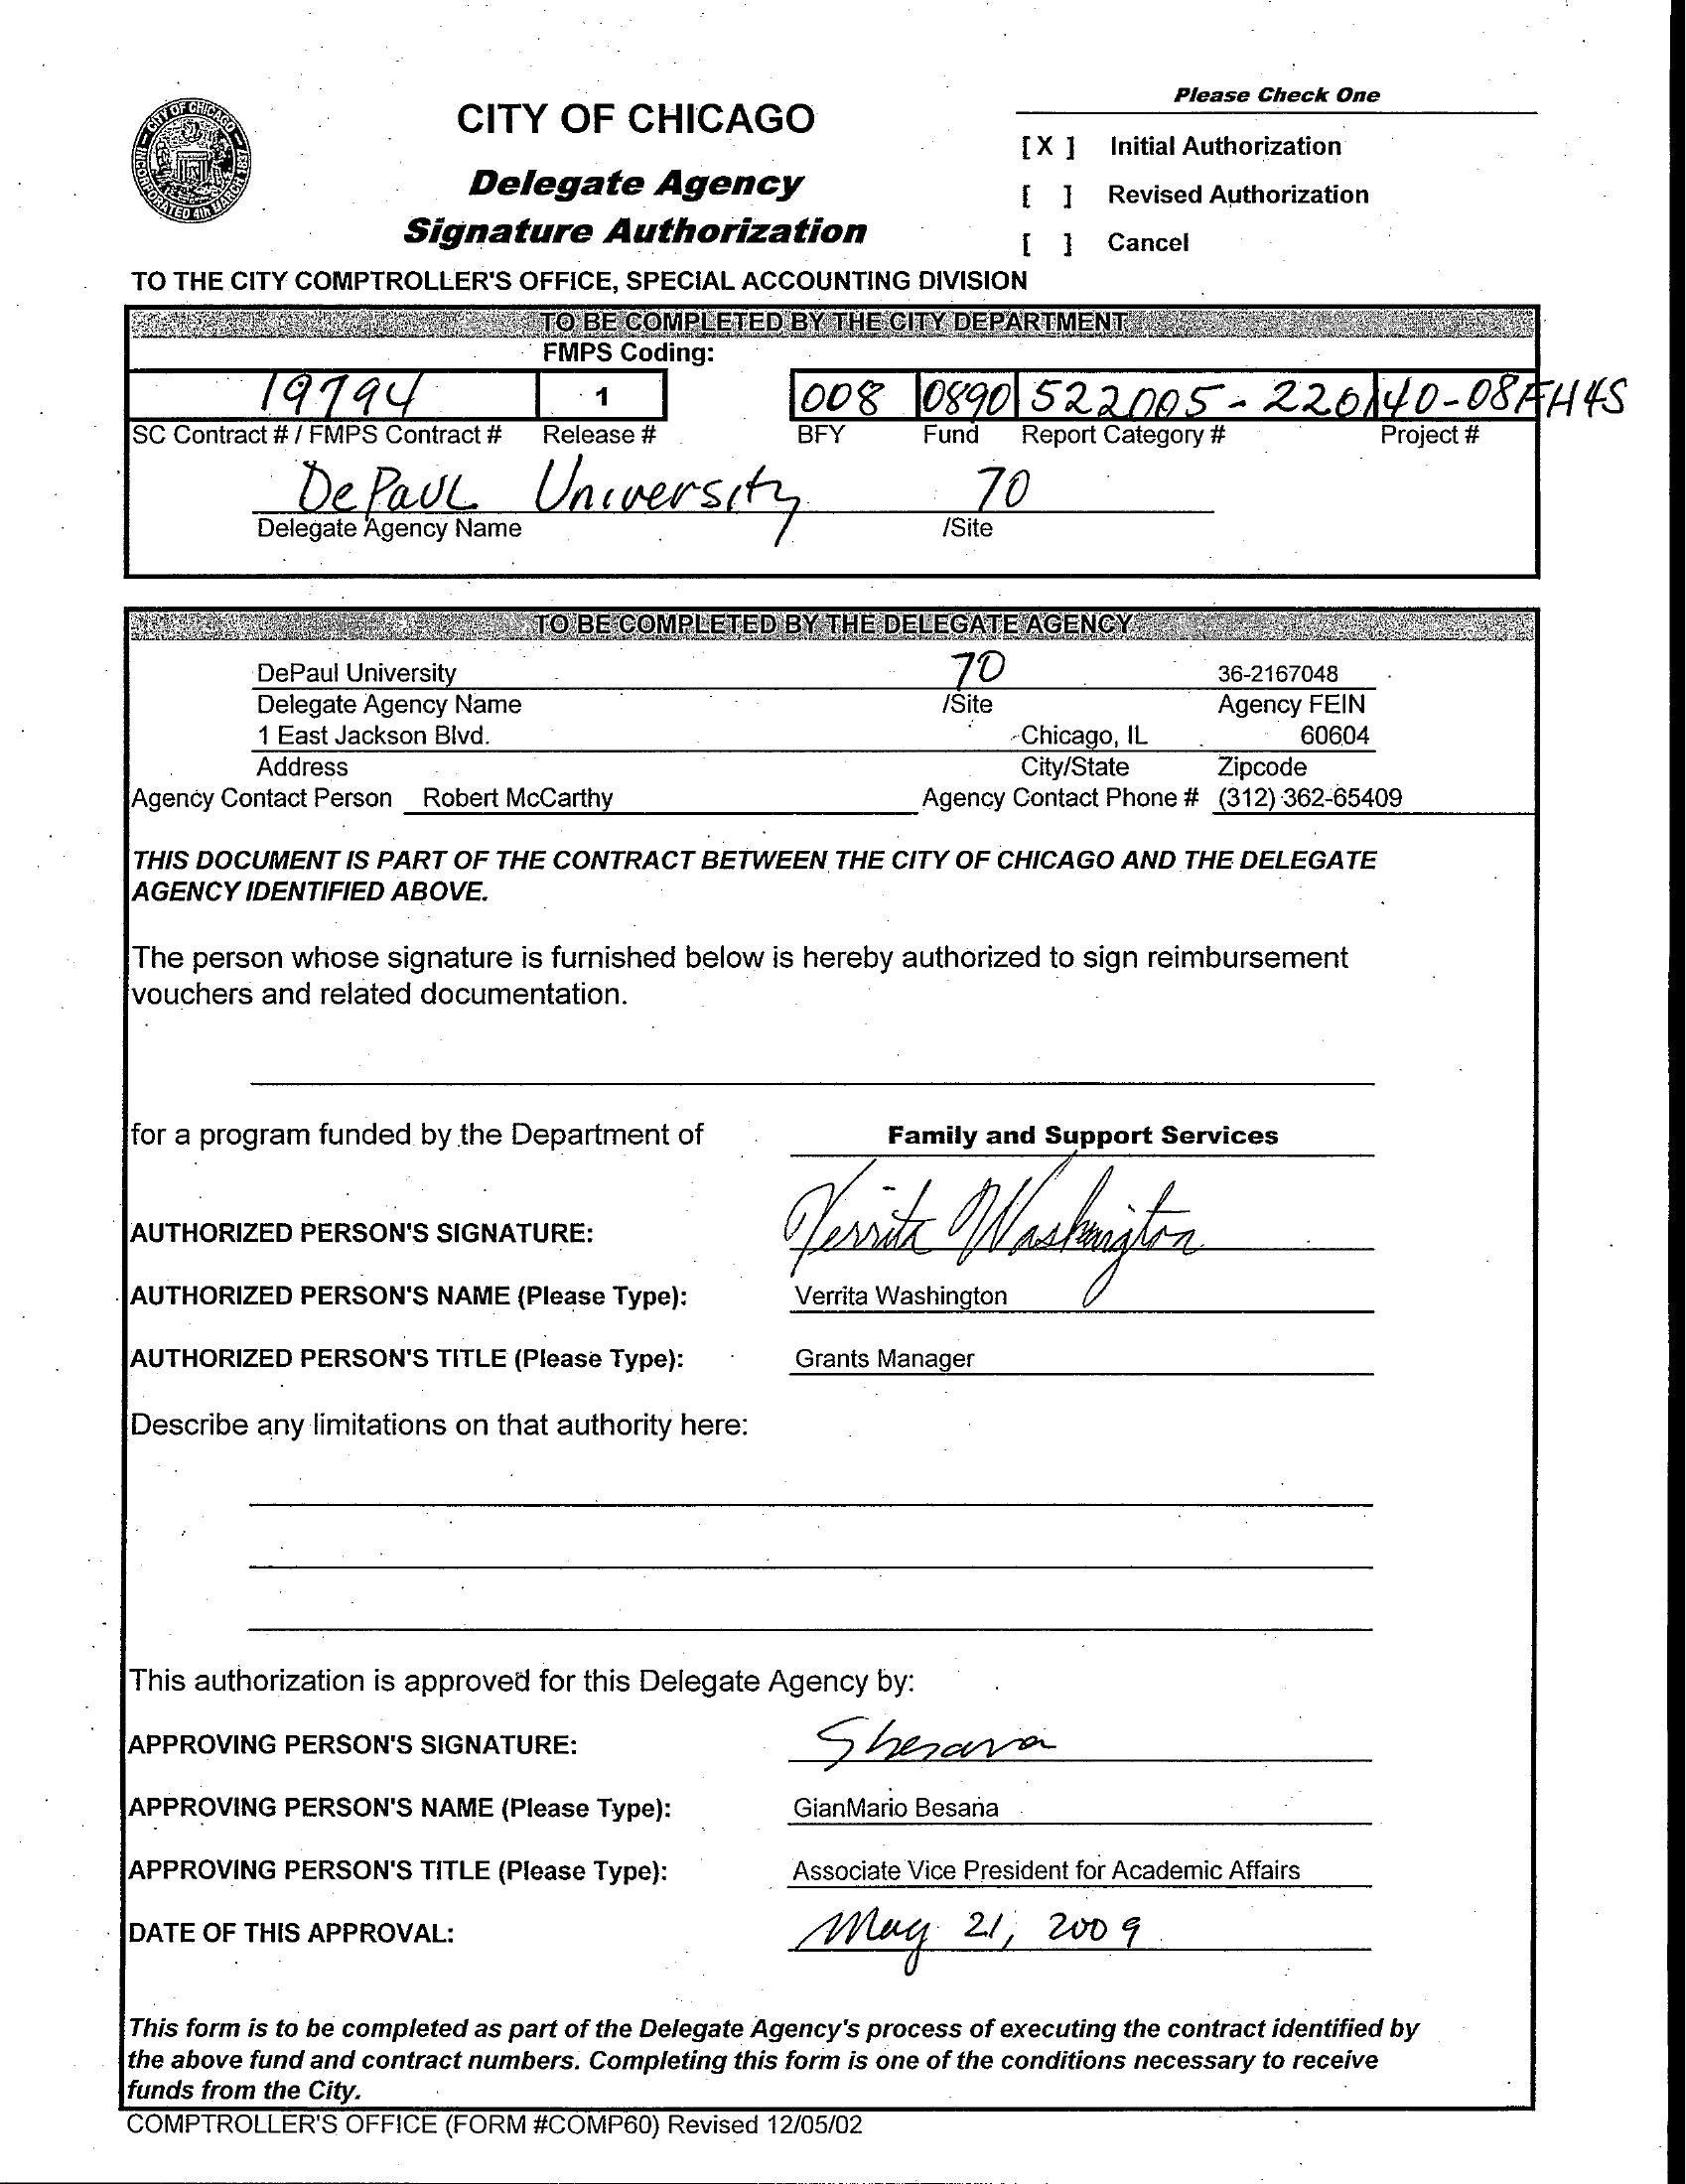 Please Check One
CITY OF CHICAGO
[X] Initial Authorization
Delegate Agency
[ ] Revised Authorization
Signature Authorization
[ ] Cancel
TO THE CITY COMPTROLLER'S OFFICE, SPECIAL ACCOUNTING DIVISION
TO BE COMPLETED BY THE CITY DEPARTMENT
FMPS Coding:
19794 1 008 0890 522005-220140-08FH4S
SC Contract # / FMPS Contract # Release # BFY Fund Report Category # Project #
DePaul University 70
Delegate Agency Name /Site
TO BE COMPLETED BY THE DELEGATE AGENCY
DePaul University 70 36-2167048
Delegate Agency Name /Site Agency FEIN
1 East Jackson Blvd. Chicago, IL 60604
Address City/State Zipcode
Agency Contact Person Robert McCarthy Agency Contact Phone # (312) 362-65409
THIS DOCUMENT IS PART OF THE CONTRACT BETWEEN THE CITY OF CHICAGO AND THE DELEGATE
AGENCY IDENTIFIED ABOVE.
The person whose signature is furnished below is hereby authorized to sign reimbursement
vouchers and related documentation.
for a program funded by the Department of Family and Support Services
AUTHORIZED PERSON'S SIGNATURE: Verrita Washington
AUTHORIZED PERSON'S NAME (Please Type): Verrita Washington
AUTHORIZED PERSON'S TITLE (Please Type): Grants Manager
Describe any limitations on that authority here:
This authorization is approved for this Delegate Agency by:
APPROVING PERSON'S SIGNATURE:
APPROVING PERSON'S NAME (Please Type): GianMario Besana
APPROVING PERSON'S TITLE (Please Type): Associate Vice President for Academic Affairs
DATE OF THIS APPROVAL: May 21, 2009
This form is to be completed as part of the Delegate Agency's process of executing the contract identified by
the above fund and contract numbers. Completing this form is one of the conditions necessary to receive
funds from the City.
COMPTROLLER'S OFFICE (FORM #COMP60) Revised 12/05/02